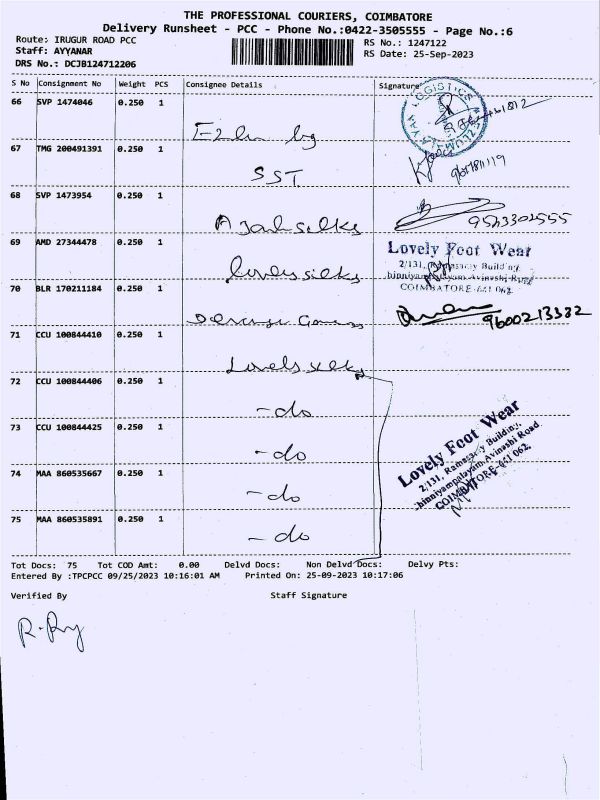 THE PROFESSIONAL COURIERS, COIMBATORE
Delivery Runsheet - PCC - Phone No.:0422-3505555 - Page No.:6
Route: IRUGUR ROAD PCC RS No.: 1247122
Staff: AYYANAR RS Date: 25-Sep-2023
DRS No.: DCJB124712206
S No Consignment No Weight PCS Consignee Details Signature
66 SVP 1474046 0.250 1
67 TMG 200491391 0.250 1
SST
68 SVP 1473954 0.250 1
9543302555
69 AMD 27344478 0.250 1
Lovely Foot Wear
2/131, Ramasamy Building,
hinniyampalayam, Avinashi Road
COIMBATORE-641 062.
70 BLR 170211184 0.250 1
9600213332
71 CCU 100844410 0.250 1
72 CCU 100844406 0.250 1
- do
73 CCU 100844425 0.250 1
- do
74 MAA 860535667 0.250 1
- do
75 MAA 860535891 0.250 1
- do
Lovely Foot Wear
2/131, Ramasamy Building,
hinniyampalayam, Avinashi Road
COIMBATORE-641 062.
Tot Docs: 75 Tot COD Amt: 0.00 Delvd Docs: Non Delvd Docs: Delvy Pts:
Entered By :TPCPCC 09/25/2023 10:16:01 AM Printed On: 25-09-2023 10:17:06
Verified By Staff Signature